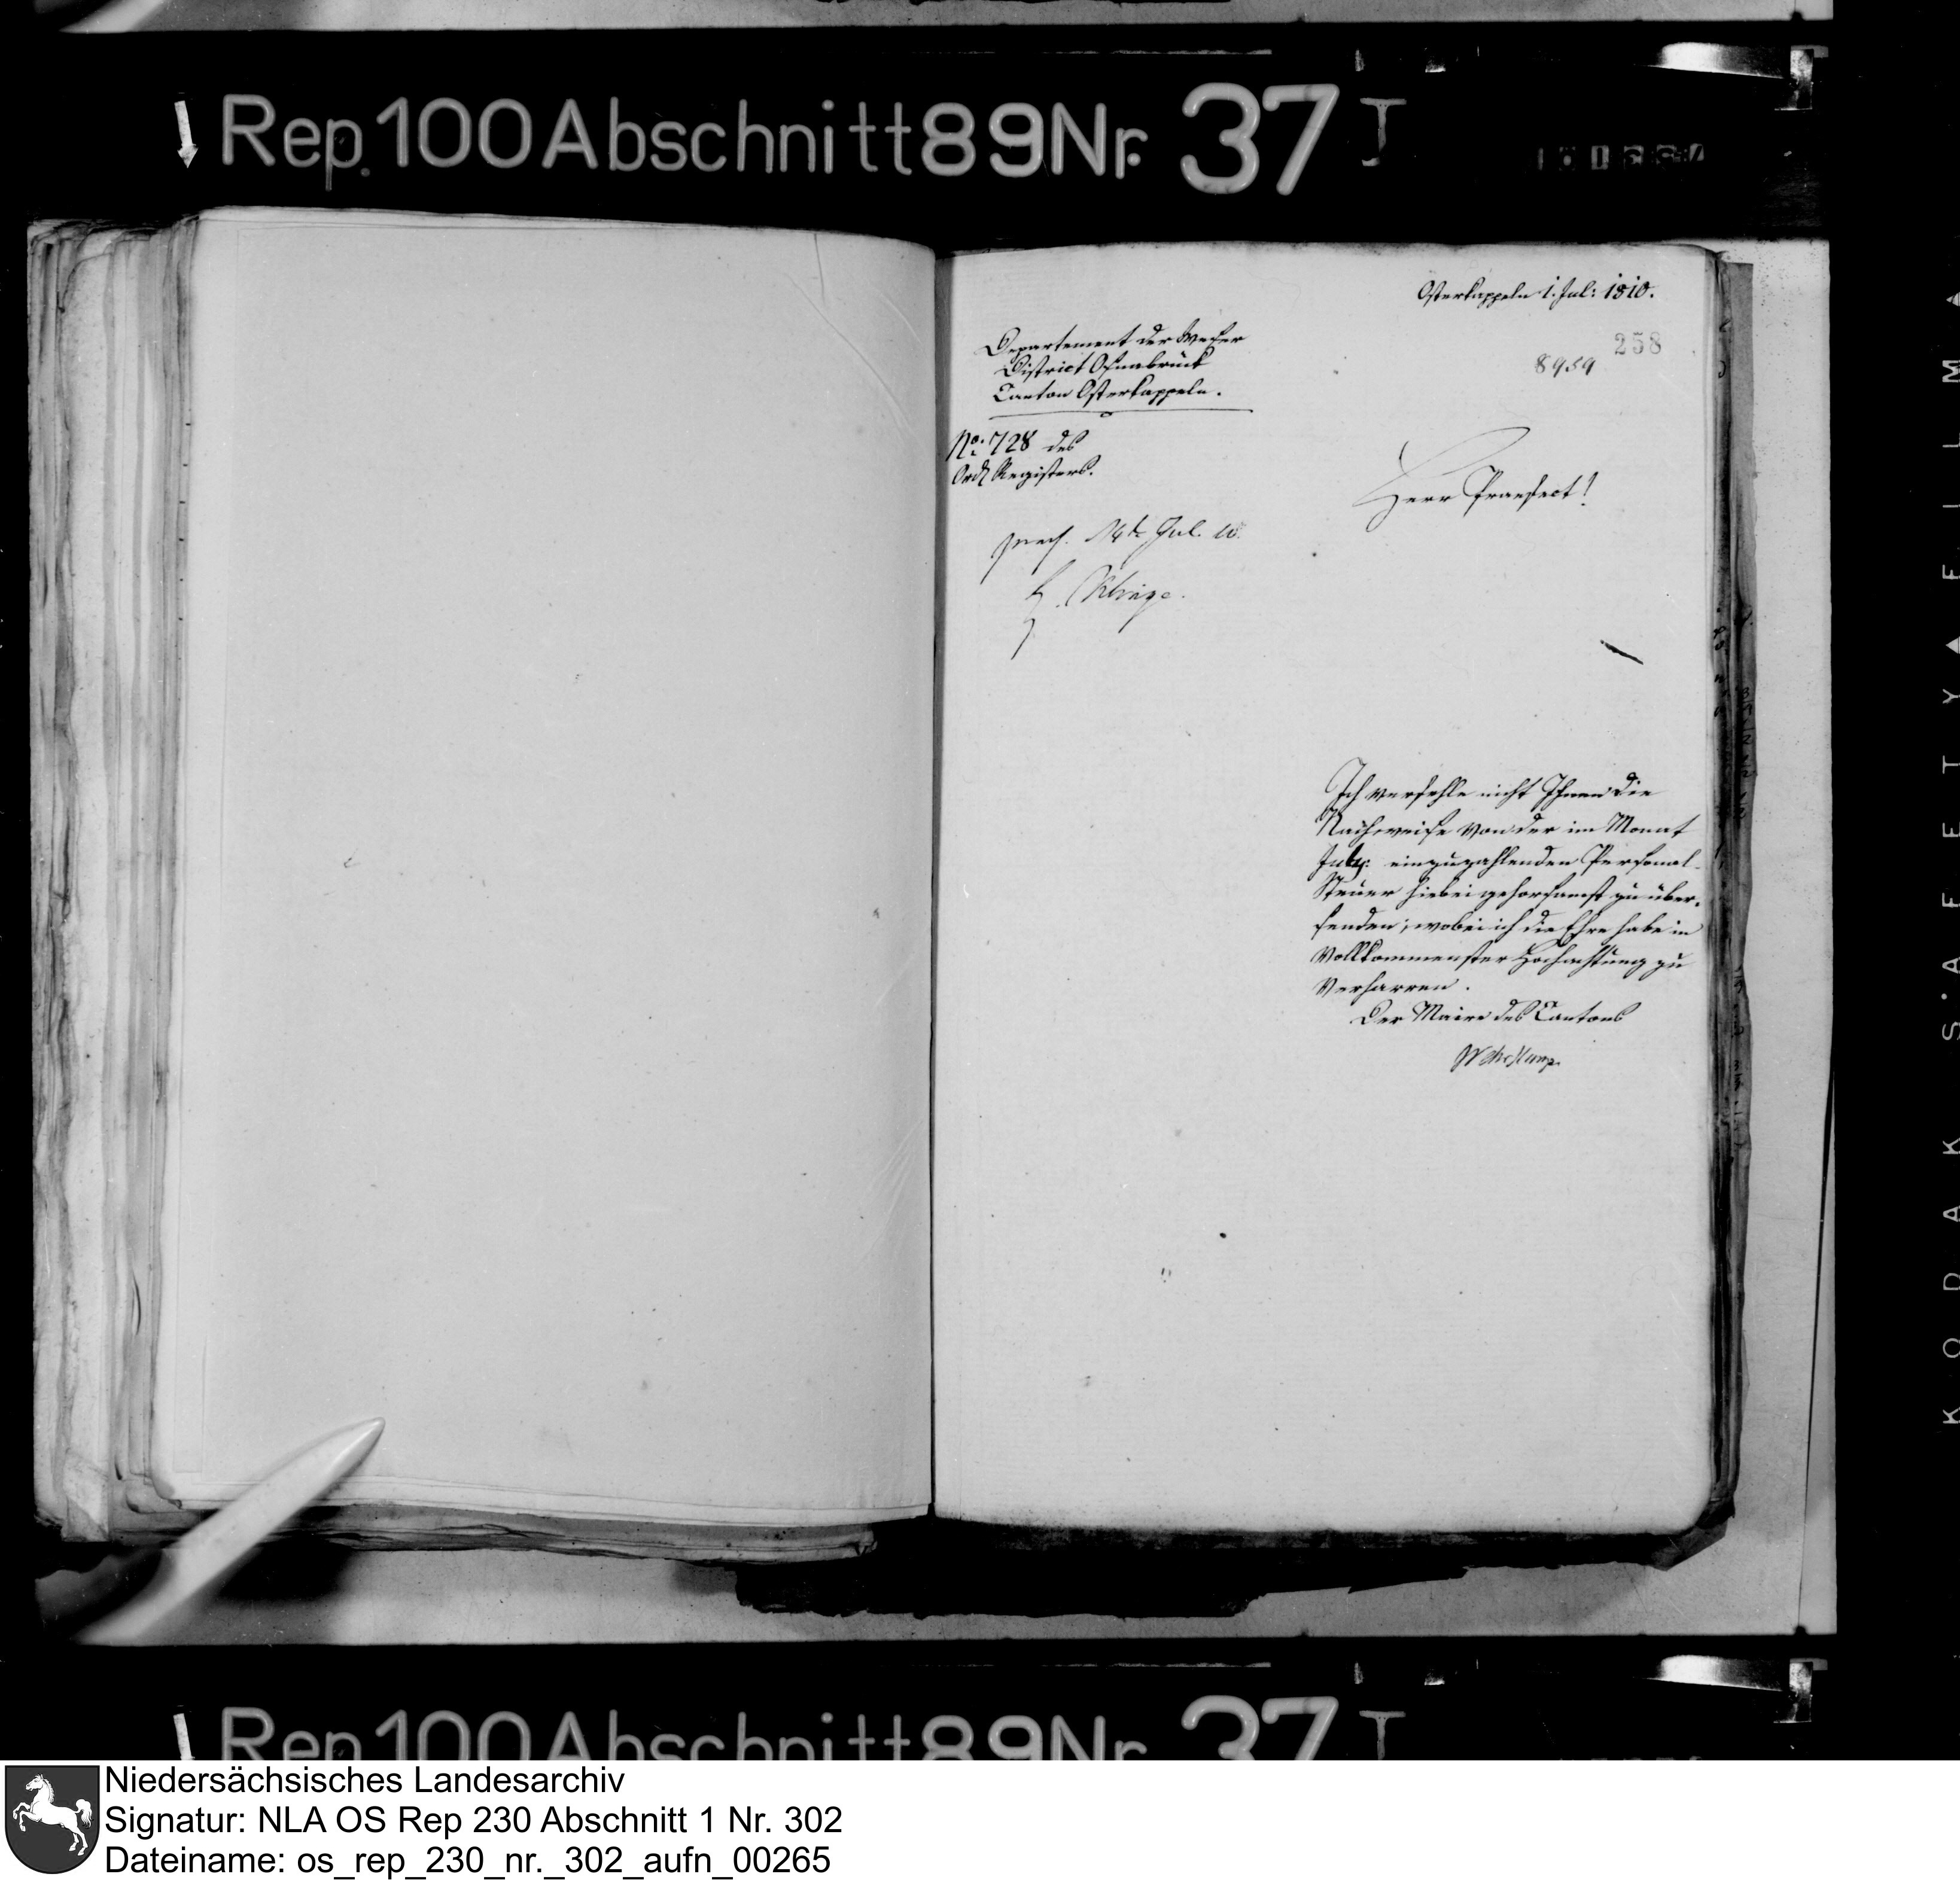 Rep. 100 Abschnitt 89 Nr. 37 I
Osterkappeln 1. Jul: 1810.
258
8959
Departement der Weser
District Osnabrück
Canton Osterkappeln.
No. 728 des
Ord. Registers.
Herr Praefect!
praes. 14t Jul. 10.
Klinge.
Ich verfehle nicht Ihnen die
Nachweise von der im Monat
July: einzuzahlenden Personal-
Steuer hiebei gehorsamst zu über-
senden; wobei ich die Ehre habe in
Vollkommenster Hochachtung zu
Verharren.
Der Maire des Cantons
KODAK S·A·F·E·T·Y ▲ FILM ▲
Rep. 100 Abschnitt 89 Nr. 37 I
Niedersächsisches Landesarchiv
Signatur: NLA OS Rep 230 Abschnitt 1 Nr. 302
Dateiname: os_rep_230_nr._302_aufn_00265